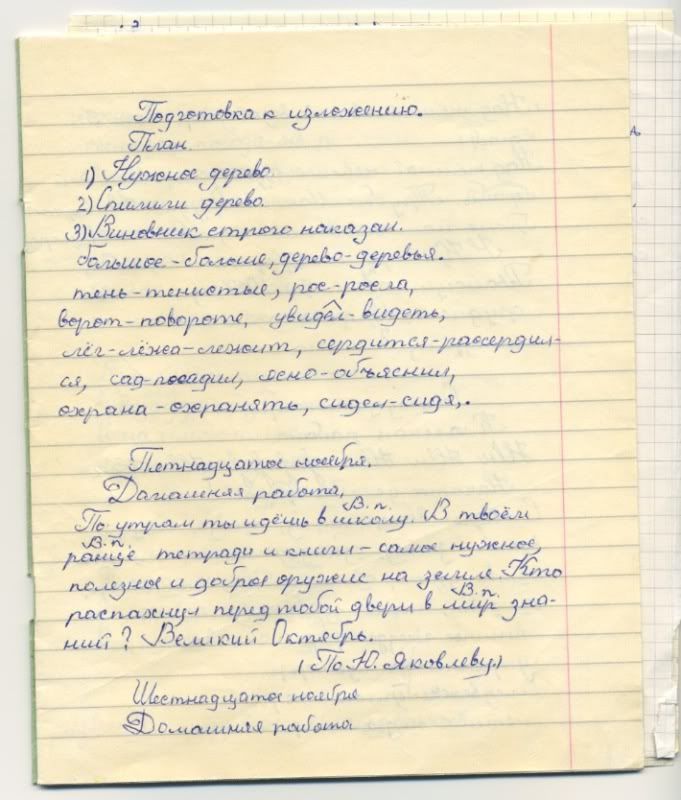 Подготовка к изложению.
План
1) Нужное дерево.
2) Спилили дерево.
3) Виновник строго наказан.
большое - больше, дерево - деревья.
тень - тенистые, рос - росла,
ворот - повороте, увидел - видеть,
лёг - лёжа - лежит, сердится - рассердил-
ся, сад - посадил, ясно - объяснил,
охрана - охранять, сидел - сидя,.
Петнадцатое ноября.
Дамашняя работа,
В.п.
По утрам ты идёшь в школу. В твоём
В.п.
ранце тетради и книги - самое нужное,
полезное и доброе оружие на земле. Кто
В.п.
распахнул перед тобой двери в мир зна-
ний? Великий Октябрь.
(По Ю. Яковлеву)
Шестнадцатое ноября
Домашняя работа